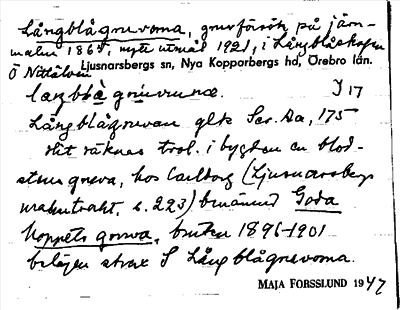 Långblågruvorna, gruvförsök på järn-
malm 1864, nytt utmål 1921, i Långblåskogen
Ö Nittälven Ljusnarsbergs sn, Nya Kopparbergs hd, Örebro län.
I 17
Långblågruvan glk Ser. Aa, 175
dit räknas trol. i bygden en blod-
stensgruva, hos Carlborg (Ljusnarsbergs
malmtrakt, s. 223) benämnd Goda
Hoppets gruva, bruten 1896-1901
belägen strax S Långblågruvorna.
MAJA FORSSLUND 1947